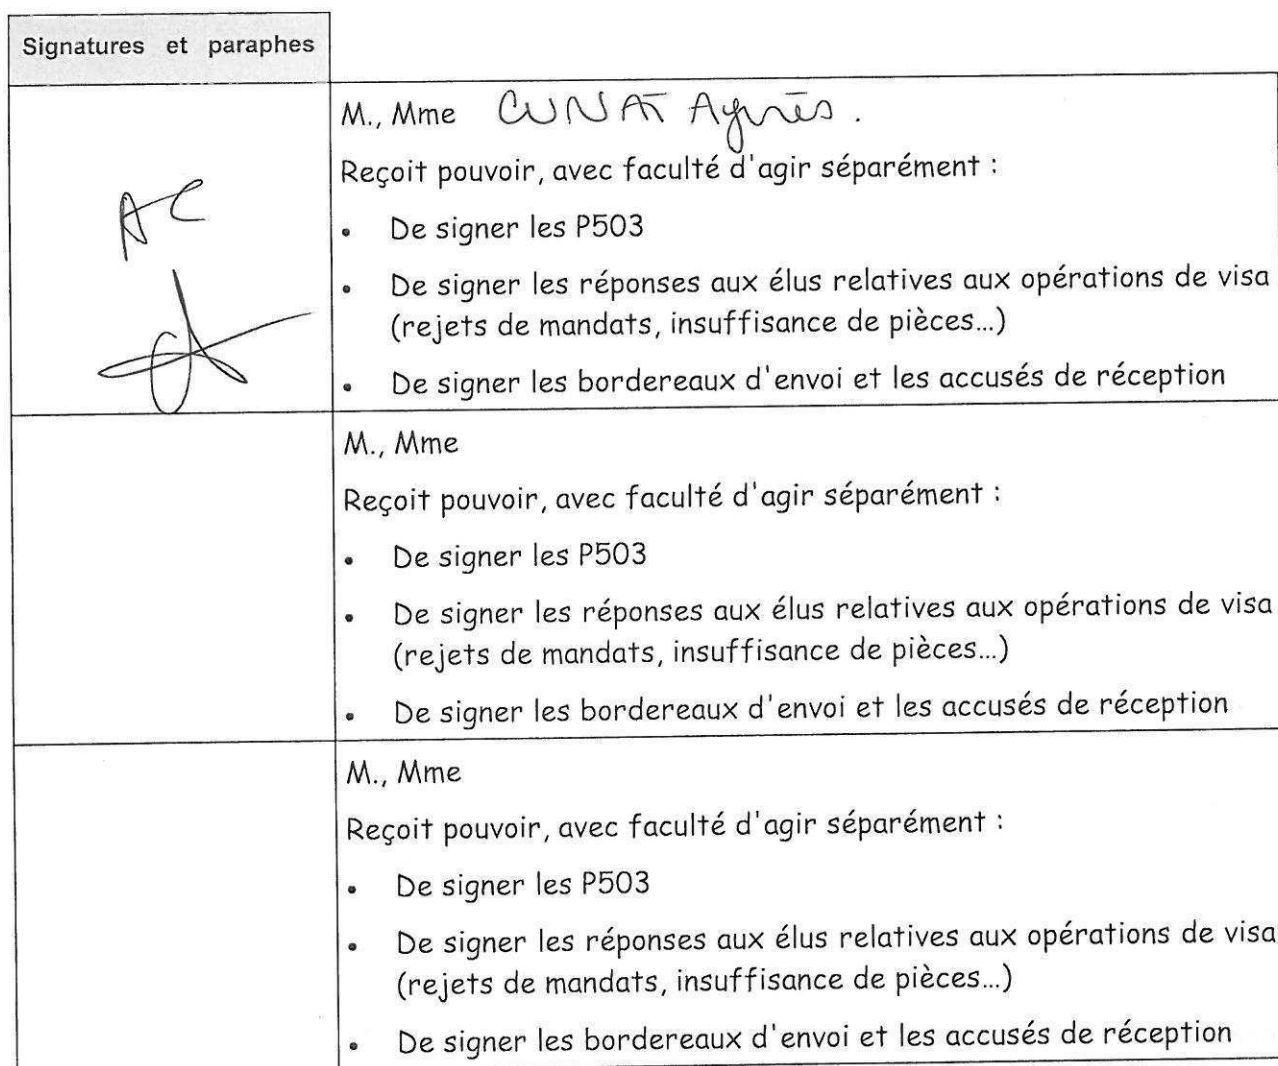 Signatures et paraphes
M., Mme CUNAT Agnès.
Reçoit pouvoir, avec faculté d'agir séparément :
• De signer les P503
• De signer les réponses aux élus relatives aux opérations de visa
(rejets de mandats, insuffisance de pièces...)
• De signer les bordereaux d'envoi et les accusés de réception
AC
M., Mme
Reçoit pouvoir, avec faculté d'agir séparément :
• De signer les P503
• De signer les réponses aux élus relatives aux opérations de visa
(rejets de mandats, insuffisance de pièces...)
• De signer les bordereaux d'envoi et les accusés de réception
M., Mme
Reçoit pouvoir, avec faculté d'agir séparément :
• De signer les P503
• De signer les réponses aux élus relatives aux opérations de visa
(rejets de mandats, insuffisance de pièces...)
• De signer les bordereaux d'envoi et les accusés de réception